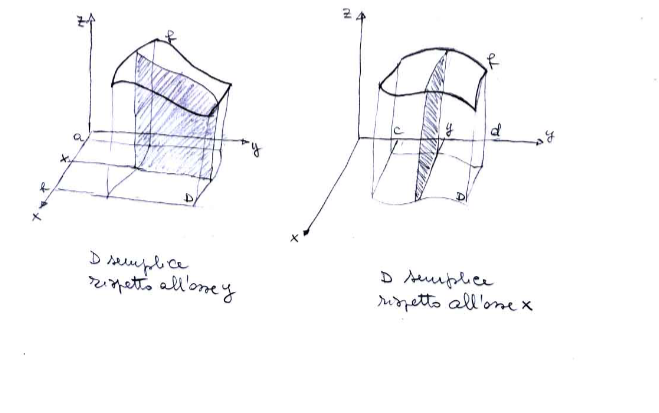 z
f
a
y
x
b
D
x
D semplice
rispetto all'asse y
z
f
c
y
d
y
D
x
D semplice
rispetto all'asse x